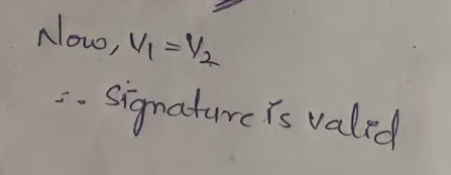 Now, V₁ = V₂
∴ Signature is valid